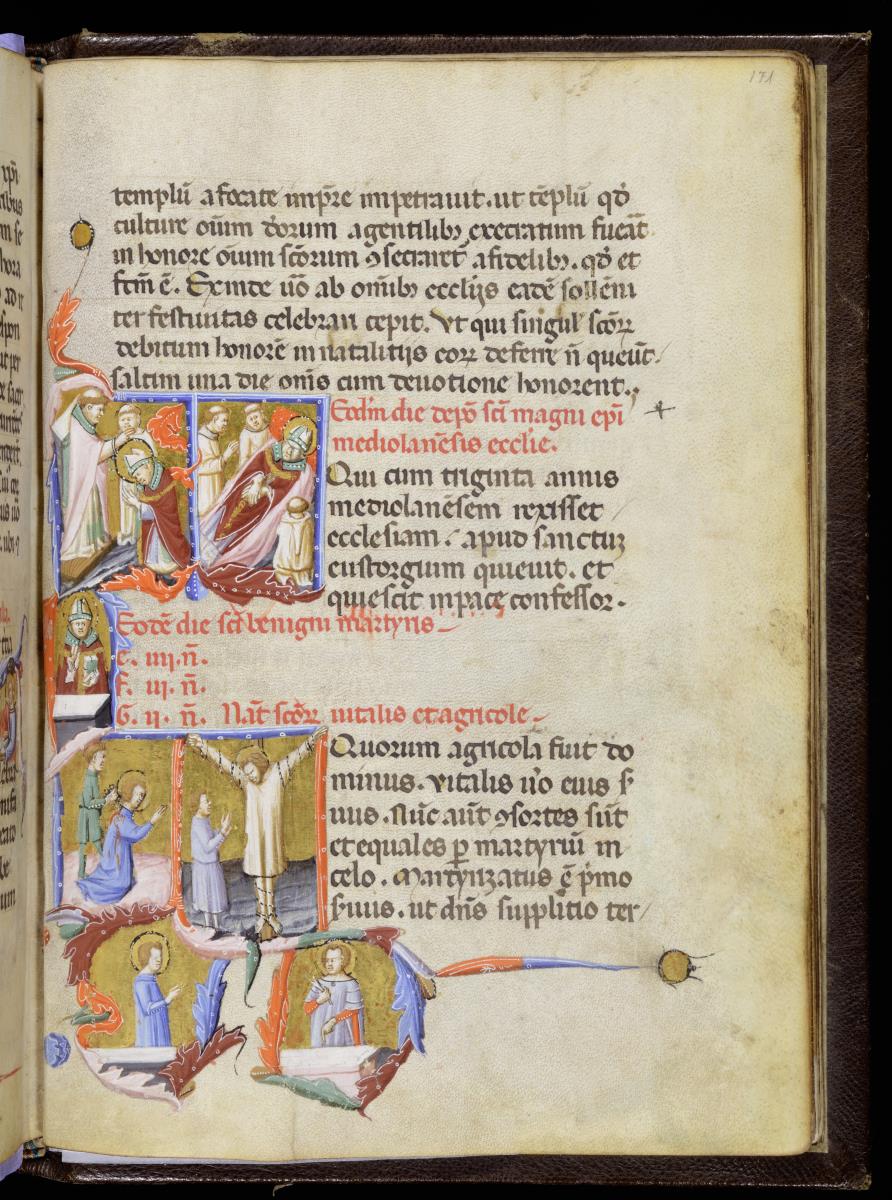 171
templū a focate impr̄e impetrauit. ut tēplū qđ
culture oīum deorum agentilibꝫ execratum fuat̄
in honore oīum sc̄orum ꝯsecraret̄ afidelibꝫ. qđ et
fc̄m ē. Exinde ūo ab om̄ibꝫ eccl̄ijs eadē sollēni
ter festiuitas celebrari cepit. Vt qui singul̄ sc̄oꝝ
debitum honorē in natalitijs eoꝝ deferre n̄ queūt
saltim una die om̄is cum deuotione honorent.
Eod̄m die depō sc̄i magni epī
mediolan̄ēsis eccl̄ie.
Qui cum triginta annis
mediolanēsem rexisset
ecclesiam. apud sanctuꝫ
eustorgium quieuit. et
quiescit in pace confessor.
Eodē die sc̄i benigni martyris
E. iiij. n̄.
F. iij. n̄.
G. ij. n̄. Nat̄ sc̄oꝝ uitalis et agricole
Quorum agricola fuit do
minus. vitalis ūo eius s̄
uus. Nūc aūt ꝯsortes sūt
et equales ꝑ martyriū in
celo. Martyrizatus ē p̄mo
s̄uus. ut dn̄s supplitio ter